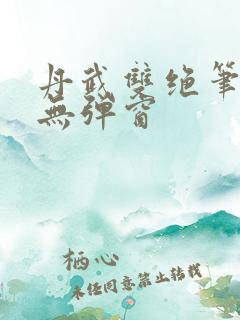 丹武雙绝筆
無彈窗
栖心
未经同意禁止转载